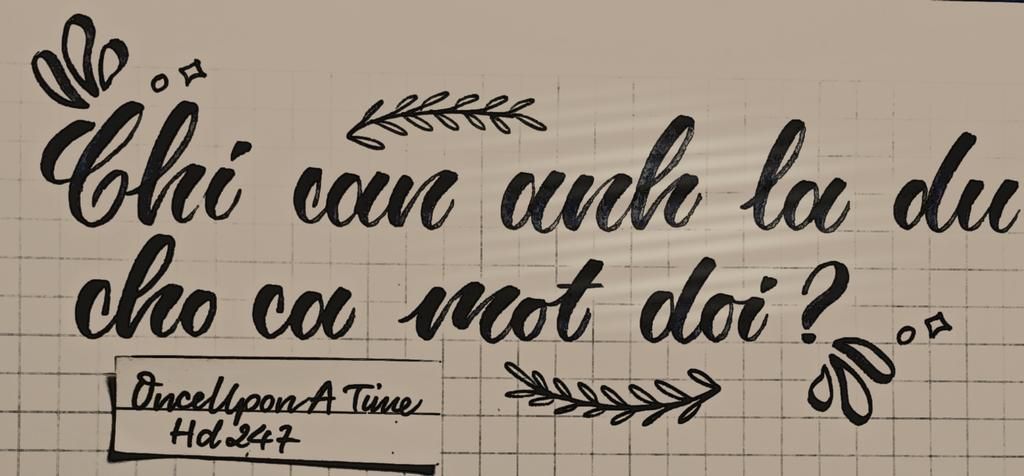 Chi can anh la du
cho ca mot doi?
OnceUpon A Time
Hd 247